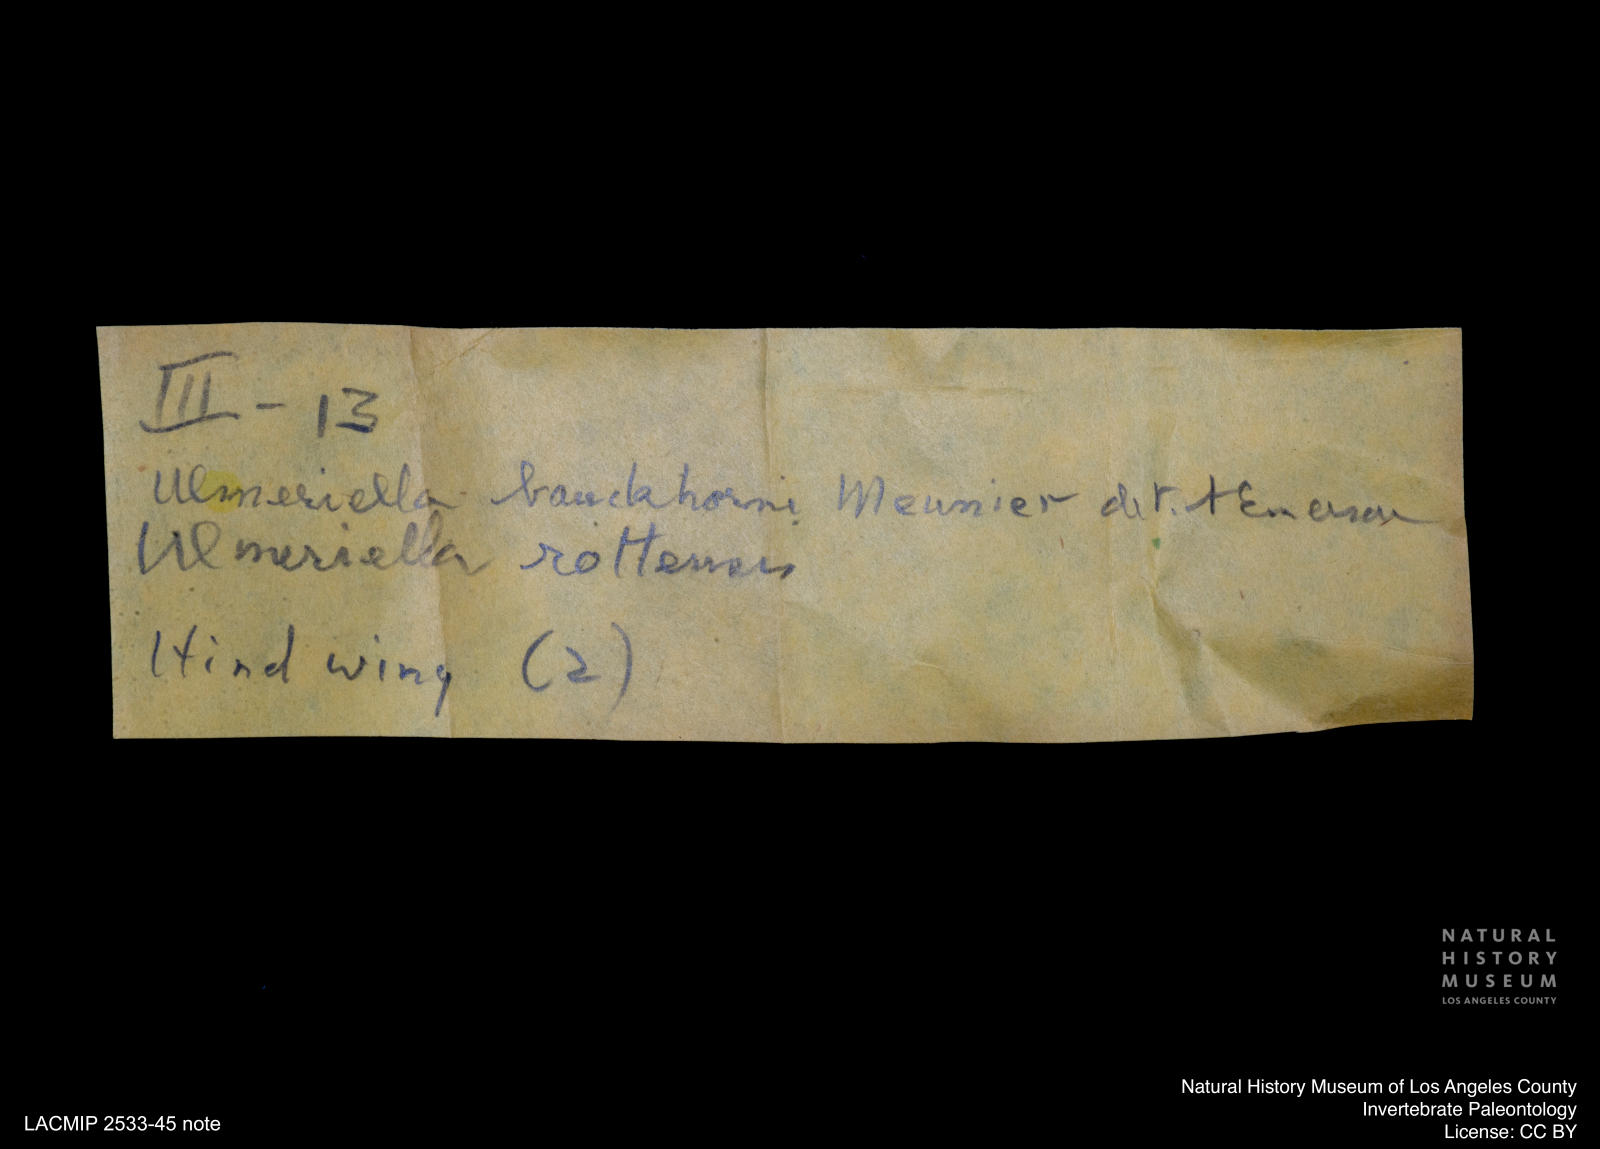 III - 13
Ulmeriella bauckhorni Meunier det. A Emerson
Ulmeriella rottensis
Hind wing (2)
NATURAL
HISTORY
MUSEUM
LOS ANGELES COUNTY
Natural History Museum of Los Angeles County
Invertebrate Paleontology
License: CC BY
LACMIP 2533-45 note